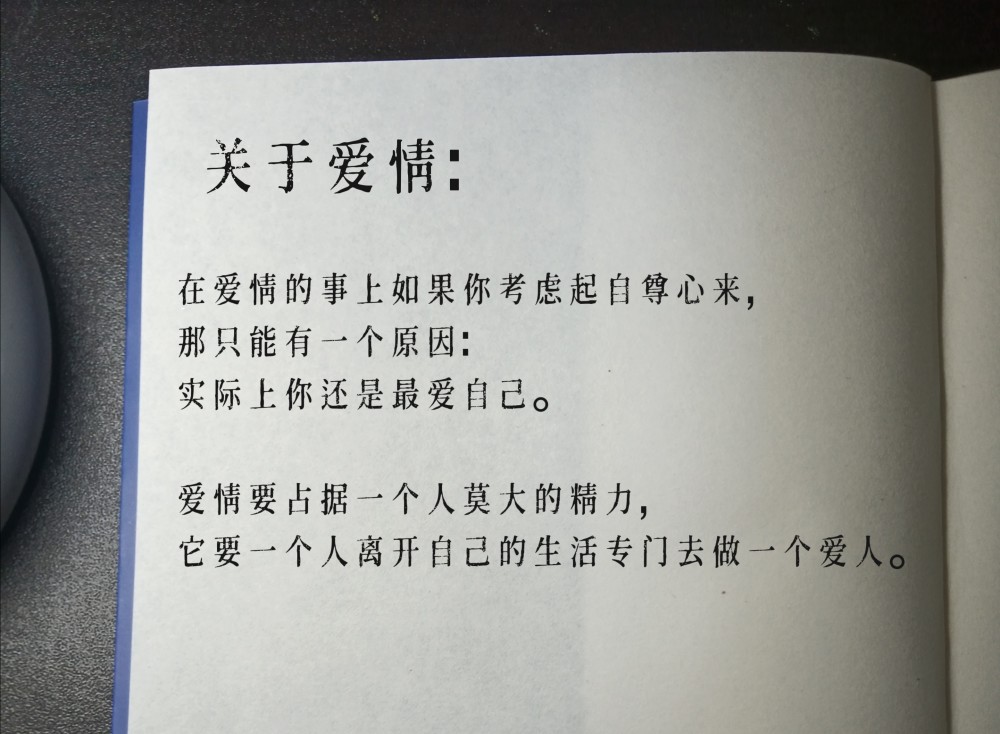 关于爱情:
在爱情的事上如果你考虑起自尊心来,
那只能有一个原因:
实际上你还是最爱自己。
爱情要占据一个人莫大的精力,
它要一个人离开自己的生活专门去做一个爱人。